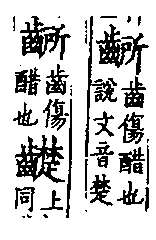 齭齒傷醋也說文音楚
齭齒傷醋也齼上同